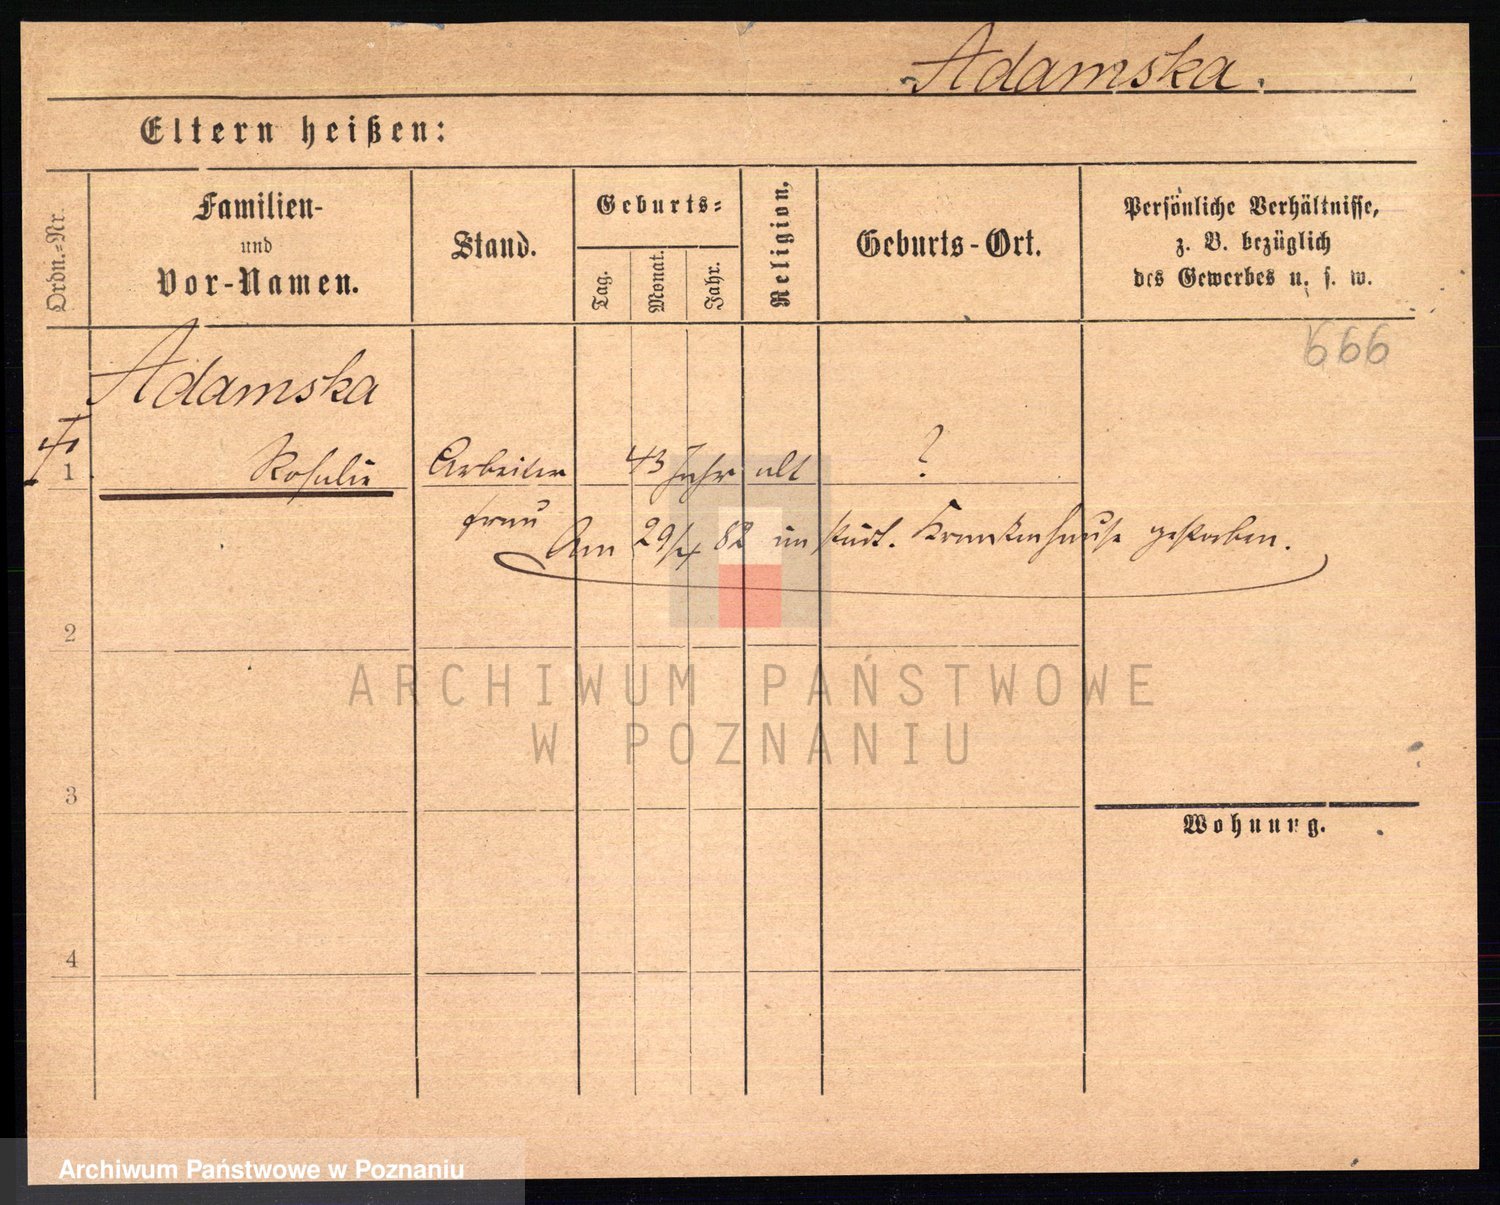 Adamska.
Eltern heißen:
Ordn.=Nr.
Familien-
und
Vor-Namen.
Stand.
Geburts=
Tag.
Monat.
Jahr.
Religion.
Geburts-Ort.
Persönliche Verhältnisse,
z. B. bezüglich
des Gewerbes u. s. w.
666
Adamska
1 Rosalie Arbeiter 43 Jahr alt ?
frau
Am 29/4 82 im städt. Krankenhause gestorben.
2
ARCHIWUM PAŃSTWOWE
W POZNANIU
3
Wohnung.
4
Archiwum Państwowe w Poznaniu